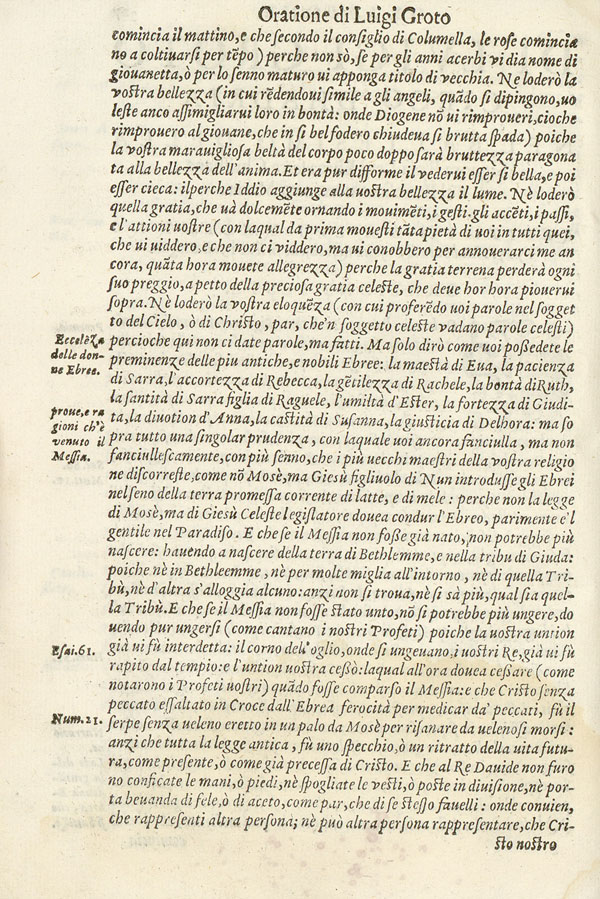 Oratione di Luigi Groto
comincia il mattino, e che secondo il consiglio di Columella, le rose comincia
no a coltiuarsi per tẽpo) perche non sò, se per gli anni acerbi vi dia nome di
giouanetta, ò per lo senno maturo ui apponga titolo di vecchia. Ne loderò la
vostra bellezza (in cui rẽdendoui simile a gli angeli, quãdo si dipingono, uo
leste anco assimigliarui loro in bontà: onde Diogene nõ ui rimproueri, cioche
rimprouerò al giouane, che in sì bel fodero chiudeua sì brutta spada) poiche
la vostra marauigliosa beltà del corpo poco doppo sarà bruttezza paragona
ta alla bellezza dell'anima. Et era pur difforme il vederui esser sì bella, e poi
esser cieca: ilperche Iddio aggiunge alla uostra bellezza il lume. Nè loderò
quella gratia, che uà dolcemẽte ornando i mouimẽti, i gesti. gli accẽti, i passi,
e l'attioni uostre (con laqual da prima mouesti tãta pietà di uoi in tutti quei,
che ui uiddero, e che non ci viddero, ma ui conobbero per annouerarci me an
cora, quãta hora mouete allegrezza) perche la gratia terrena perderà ogni
suo preggio, a petto della preciosa gratia celeste, che deue hor hora piouerui
sopra. Nè loderò la vostra eloquẽza (con cui proferẽdo uoi parole nel sogget
to del Cielo, ò di Christo, par, che'n soggetto celeste vadano parole celesti)
Eccelẽza
delle don-
ne Ebree.
percioche qui non ci date parole, ma fatti. Ma solo dirò come uoi possedete le
preminenze delle piu antiche, e nobili Ebree: la maestà di Eua, la pacienza
di Sarra, l'accortezza di Rebecca, la gẽtilezza di Rachele, la bontà di Ruth,
la santità di Sarra figlia di Raguele, l'umiltà d'Ester, la fortezza di Giudi-
proue, e ra
gioni ch'è
venuto il
Messia.
ta, la diuotion d'Anna, la castità di Susanna, la giusticia di Delbora: ma so
pra tutto una singolar prudenza, con laquale uoi ancora fanciulla, ma non
fanciullescamente, con più senno, che i più uecchi maestri della vostra religio
ne discorreste, come nõ Mosè, ma Giesù figliuolo di Nun introdusse gli Ebrei
nel seno della terra promessa corrente di latte, e di mele: perche non la legge
di Mosè, ma di Giesù Celeste legislatore douea condur l'Ebreo, parimente e'l
gentile nel Paradiso. E che se il Messia non fosse già nato, non potrebbe più
nascere: hauendo a nascere della terra di Bethlemme, e nella tribu di Giuda:
poiche nè in Bethleemme, nè per molte miglia all'intorno, nè di quella Tri-
bù, nè d'altra s'alloggia alcuno: anzi non si troua, nè si sà più, qual sia quel-
la Tribù. E che se il Messia non fosse stato unto, nõ si potrebbe più ungere, do
uendo pur ungersi (come cantano i nostri Profeti) poiche la uostra untion
Esai. 61.
già ui fù interdetta: il corno dell'oglio, onde si ungeuano, i uostri Re, già ui fù
rapito dal tempio: e l'untion uostra cessò: laqual all'ora douea cessare (come
notarono i Profeti uostri) quãdo fosse comparso il Messia: e che Cristo senza
peccato essaltato in Croce dall'Ebrea ferocità per medicar da' peccati, fù il
Num. 21.
serpe senza ueleno eretto in un palo da Mosè per risanare da uelenosi morsi:
anzi che tutta la legge antica, fù uno specchio, ò un ritratto della uita futu-
ra, come presente, ò come già precessa di Cristo. E che al Re Dauide non furo
no conficate le mani, ò piedi, nè spogliate le vesti, ò poste in diuisione, nè por-
ta beuanda di fele, ò di aceto, come par, che di se stesso fauelli: onde conuien,
che rappresenti altra persona; nè può altra persona rappresentare, che Cri-
sto nostro